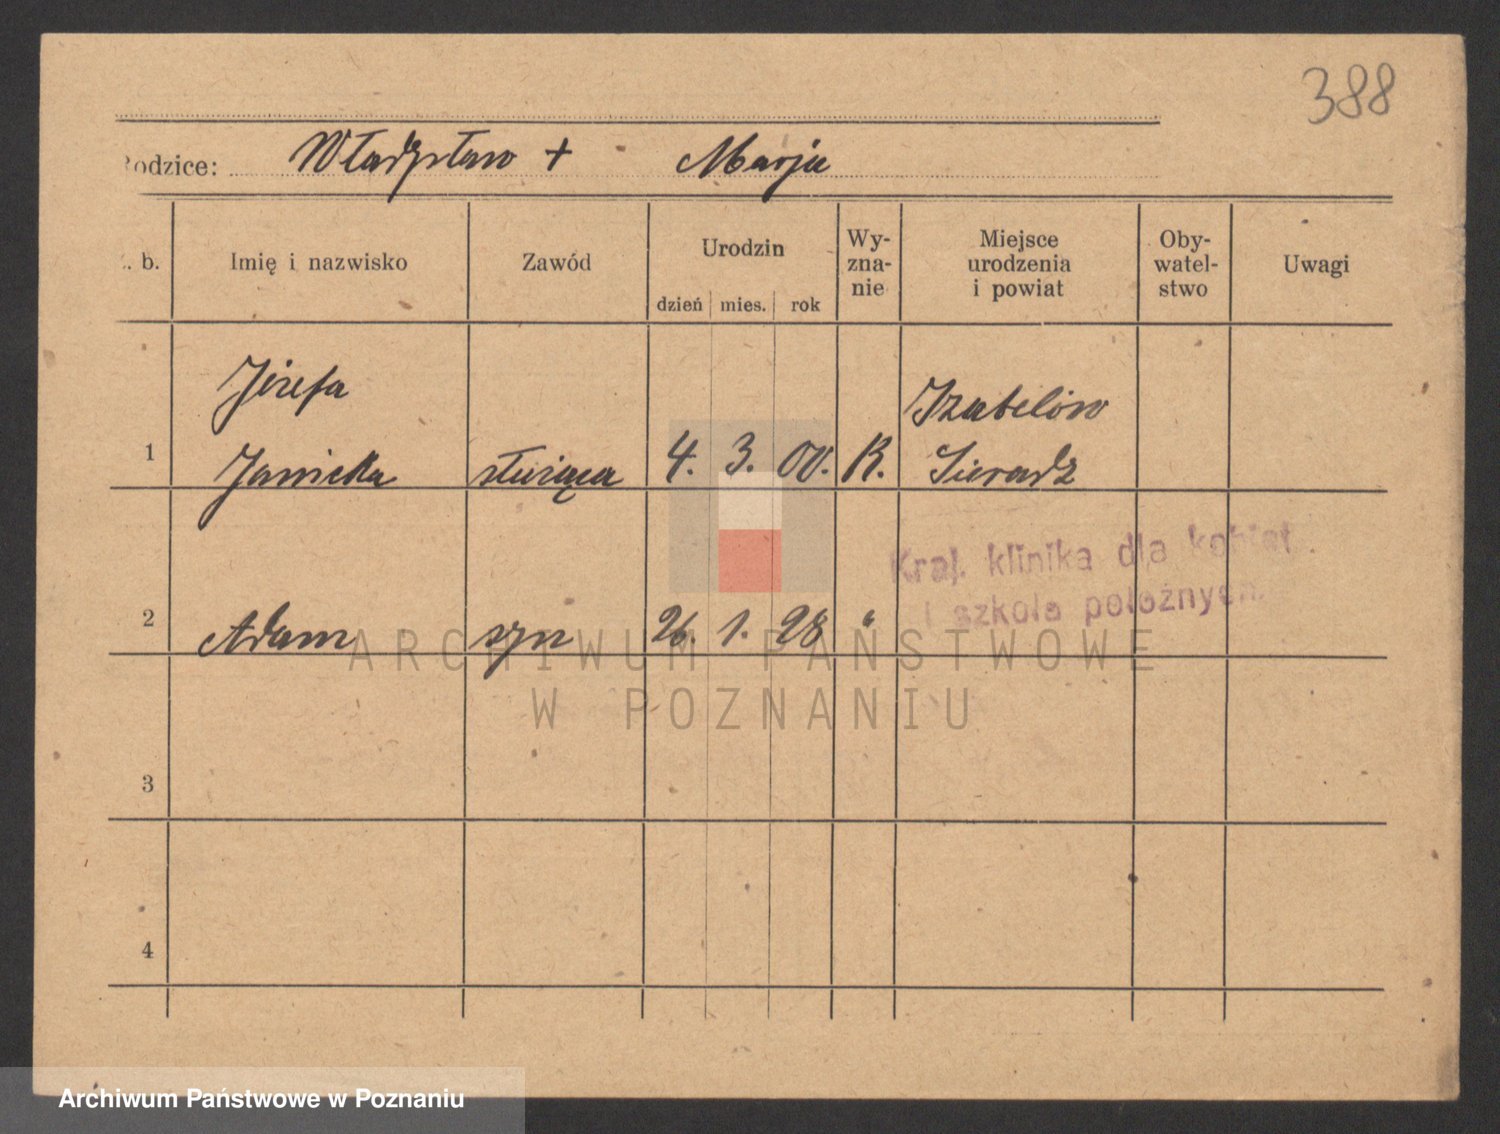 388
Rodzice: Władysław + Marja
L. b. Imię i nazwisko Zawód Urodzin dzień mies. rok Wy-zna-nie Miejsce urodzenia i powiat Oby-watel-stwo Uwagi
Józefa Izabelów
1 Janicka służąca 4. 3. 00. R. Sieradz
Kraj. klinika dla kobiet
i szkoła położnych.
2 Adam syn 26. 1. 28 "
ARCHIWUM PAŃSTWOWE
W POZNANIU
3
4
Archiwum Państwowe w Poznaniu